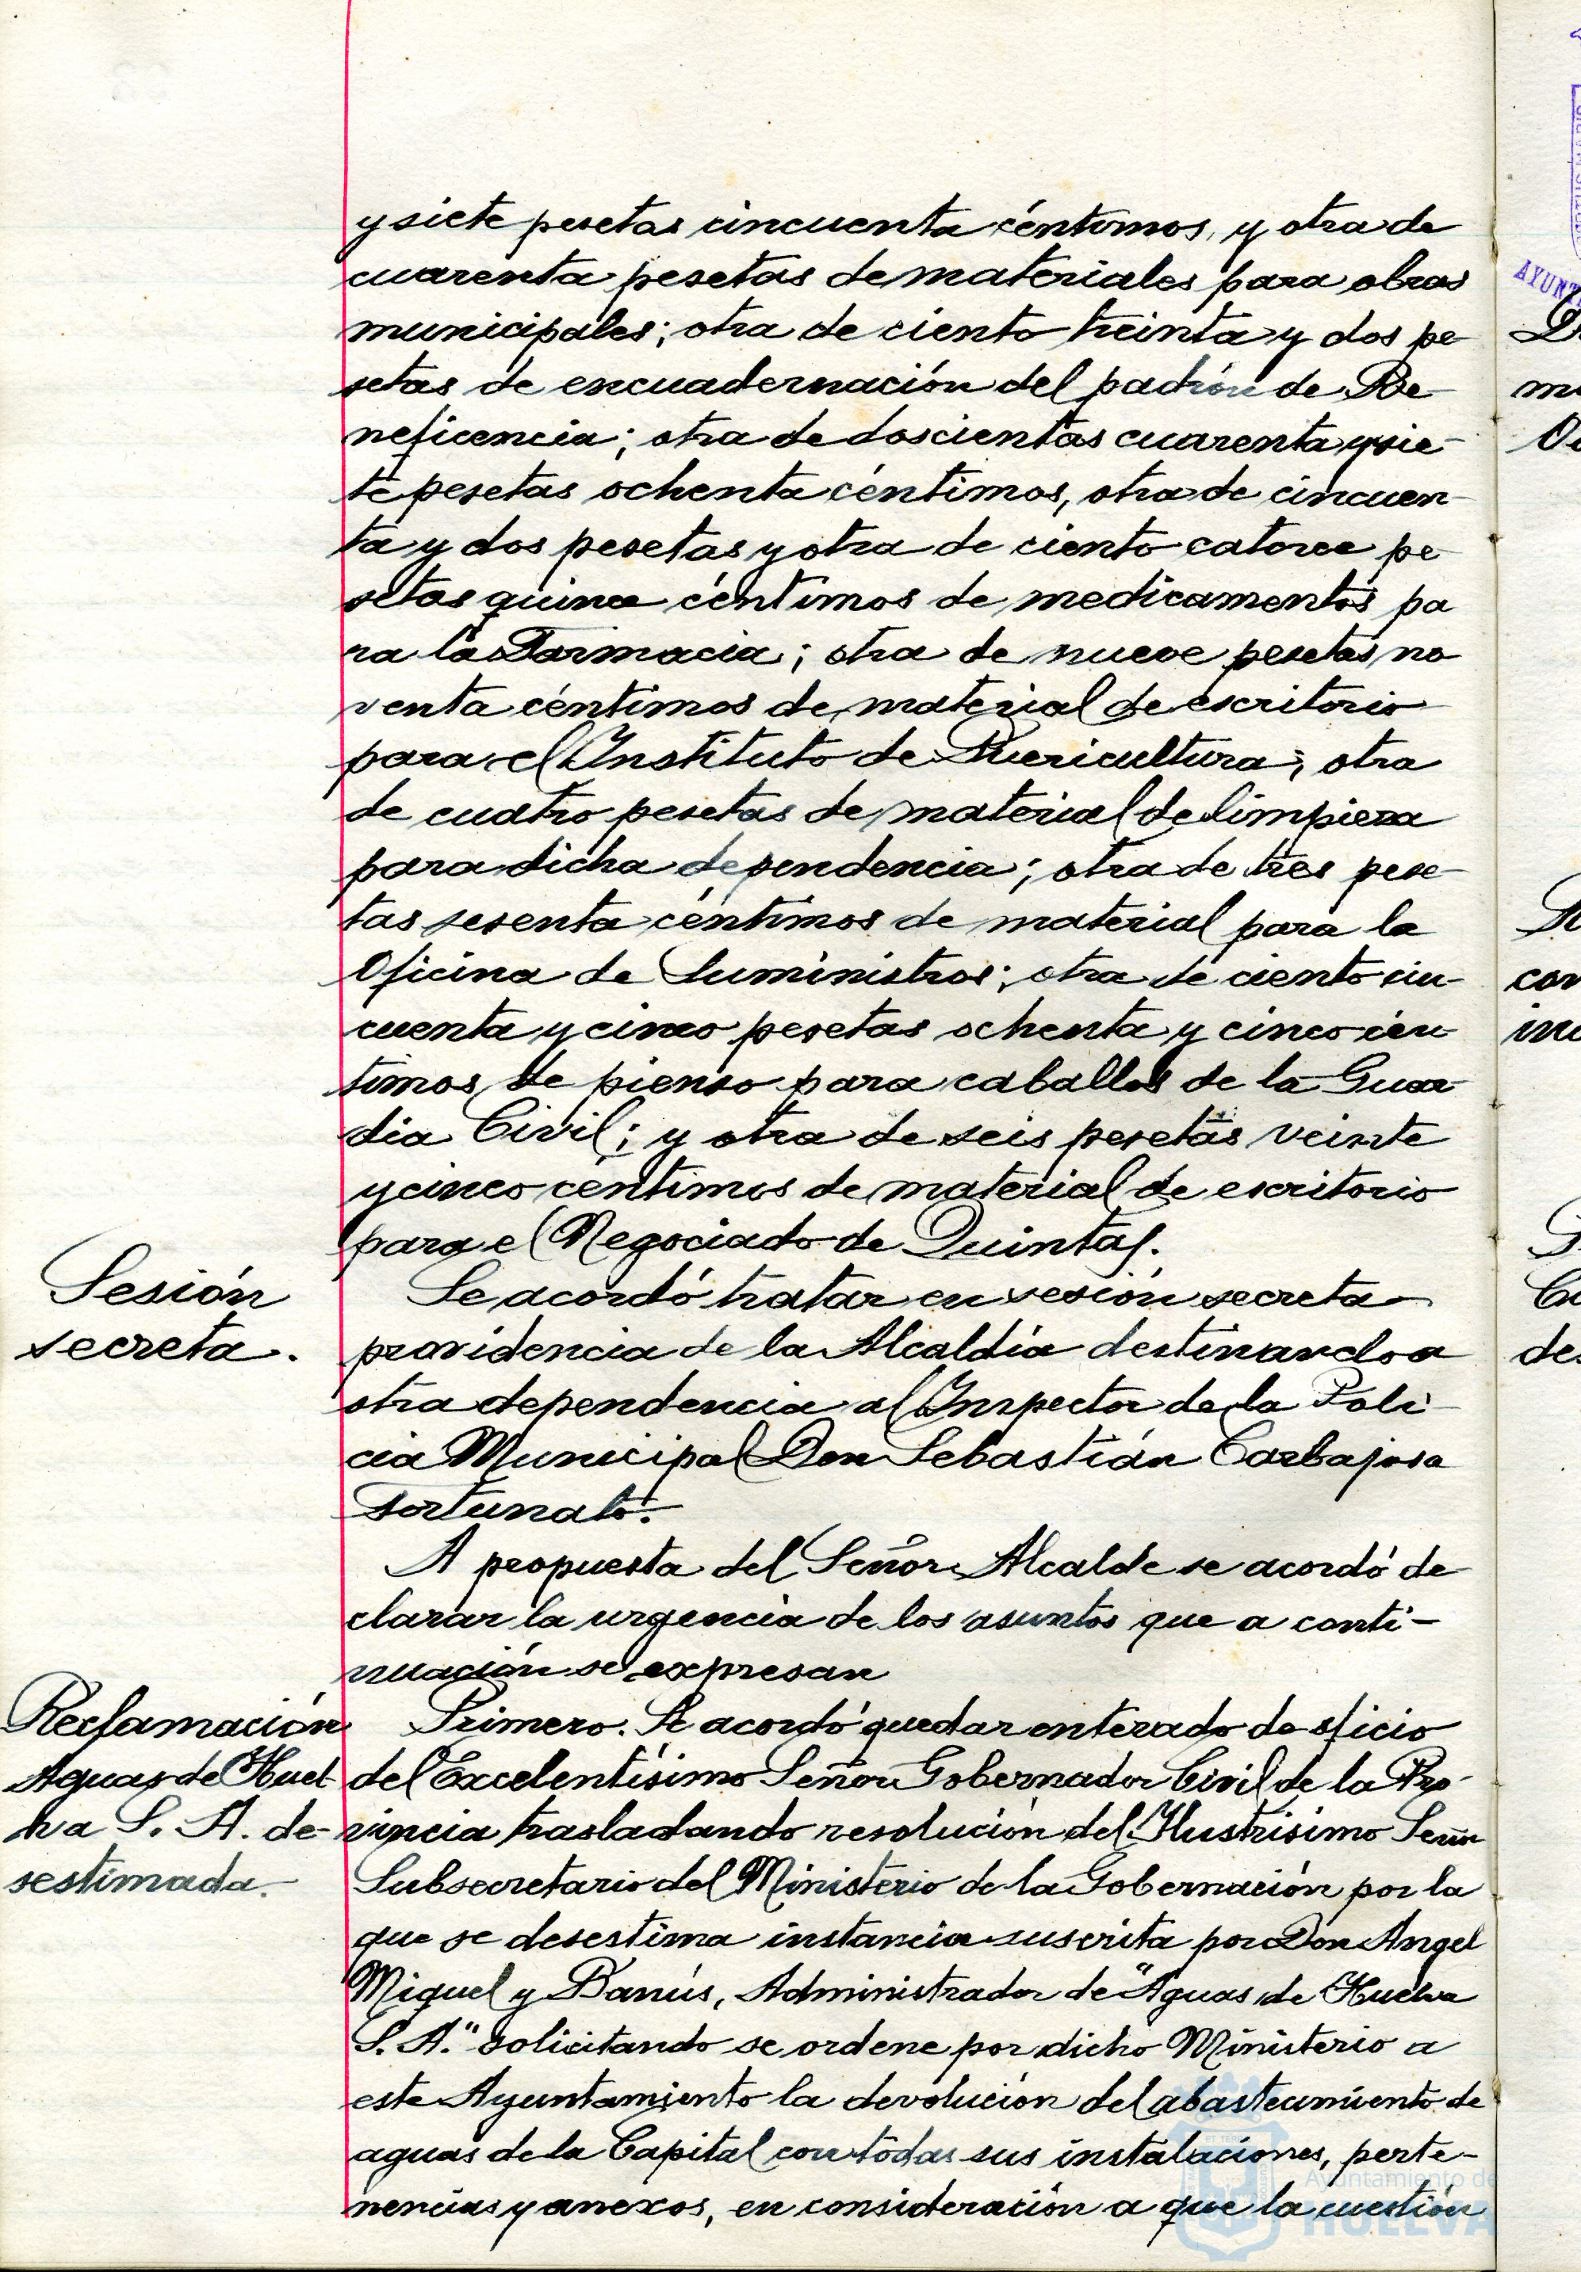 y siete pesetas cincuenta céntimos, y otra de
cuarenta pesetas de materiales para obras
municipales; otra de ciento treinta y dos pe-
setas de encuadernación del padrón de Be-
neficencia; otra de doscientas cuarenta y sie-
te pesetas ochenta céntimos, otra de cincuen-
ta y dos pesetas y otra de ciento catorce pe-
setas quince céntimos de medicamentos pa
ra la Farmacia; otra de nueve pesetas no
venta céntimos de material de escritorio
para el Instituto de Puericultura; otra
de cuatro pesetas de material de limpieza
para dicha dependencia; otra de tres pese-
tas sesenta céntimos de material para la
Oficina de Suministros; otra de ciento cin-
cuenta y cinco pesetas ochenta y cinco cén-
timos de pienso para caballos de la Guar-
dia Civil; y otra de seis pesetas veinte
y cinco céntimos de material de escritorio
para el Negociado de Quintas.
Sesión
secreta.
Se acordó tratar en sesión secreta
providencia de la Alcaldía destinando a
otra dependencia al Inspector de la Poli-
cia Municipal Don Sebastián Carbajosa
Fortunato.
A propuesta del Señor Alcalde se acordó de
clarar la urgencia de los asuntos que a conti-
nuación se expresan
Reclamación
Aguas de Huel
va S. A. de-
sestimada.
Primero. Se acordó quedar enterado de oficio
del Excelentísimo Señor Gobernador Civil de la Pro-
vincia trasladando resolución del Ilustrísimo Señor
Subsecretario del Ministerio de la Gobernación por la
que se desestima instancia suscrita por Don Angel
Miguel y Banús, Administrador de "Aguas de Huelva
S. A." solicitando se ordene por dicho Ministerio a
este Ayuntamiento la devolución del abastecimiento de
aguas de la Capital con todas sus instalaciones, perte-
nencias y anexos, en consideración a que la cuestión
Ayuntamiento de
HUELVA